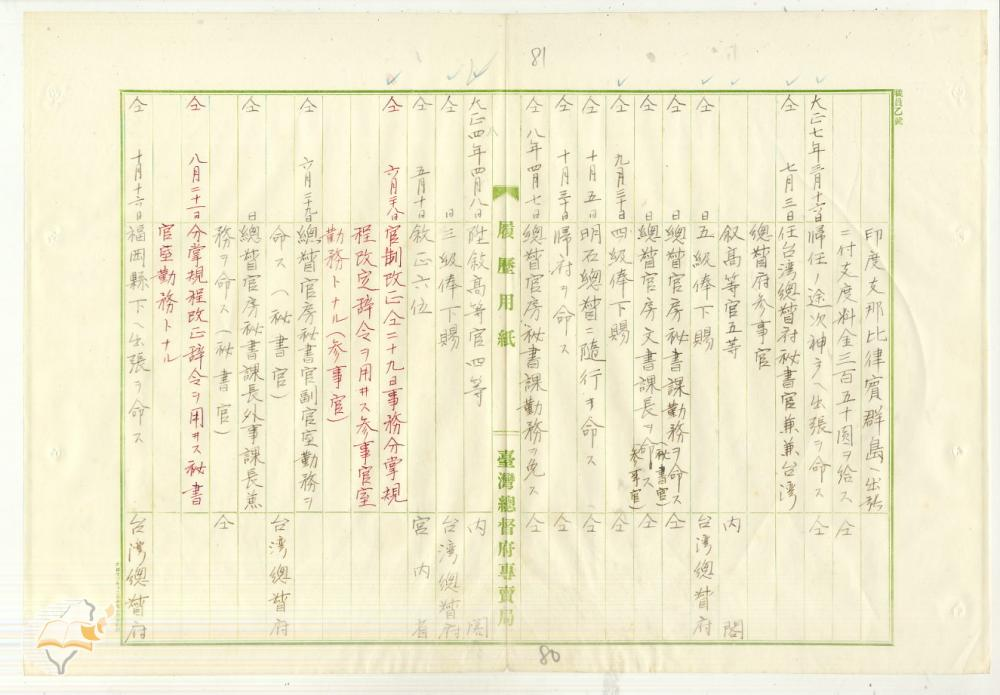 81
職員乙號
印度支那比律賓群島ヘ出張
ニ付支度料金三百五十圓ヲ給ス 仝
大正七年三月十六日 帰任ノ途次神戸ヘ出張ヲ命ス 仝
仝 七月三日 任台湾總督府秘書官兼台湾
總督府参事官
叙高等官五等 内閣
仝 日 五級俸下賜 台湾總督府
仝 日 總督官房秘書課勤務ヲ命ス(秘書官) 仝
仝 日 總督官房文書課長ヲ命ス(参事官) 仝
仝 九月三十日 四級俸下賜 仝
仝 十月五日 明石總督ニ隨行ヲ命ス 仝
仝 十月三十日 帰府ヲ命ス 仝
仝 八年四月七日 總督官房秘書課勤務ヲ免ス 仝
履歷用紙
臺灣總督府專賣局
大正四年四月八日 陞敘高等官四等 内閣
仝 日 三級俸下賜 台湾總督府
仝 五月十日 敘正六位 宮内省
仝 六月二十八日 官制改正仝二十九日事務分掌規
程改定辞令ヲ用ヰス参事官室
勤務トナル(参事官)
仝 六月二十九日 總督官房秘書官副官室勤務ヲ
命ス(秘書官) 台湾總督府
仝 日 總督官房秘書課長外事課長兼
務ヲ命ス(秘書官) 仝
仝 八月二十一日 分掌規程改正辞令ヲ用ヰス秘書
官室勤務トナル
仝 十月十六日 福岡縣下ヘ出張ヲ命ス 台湾總督府
80